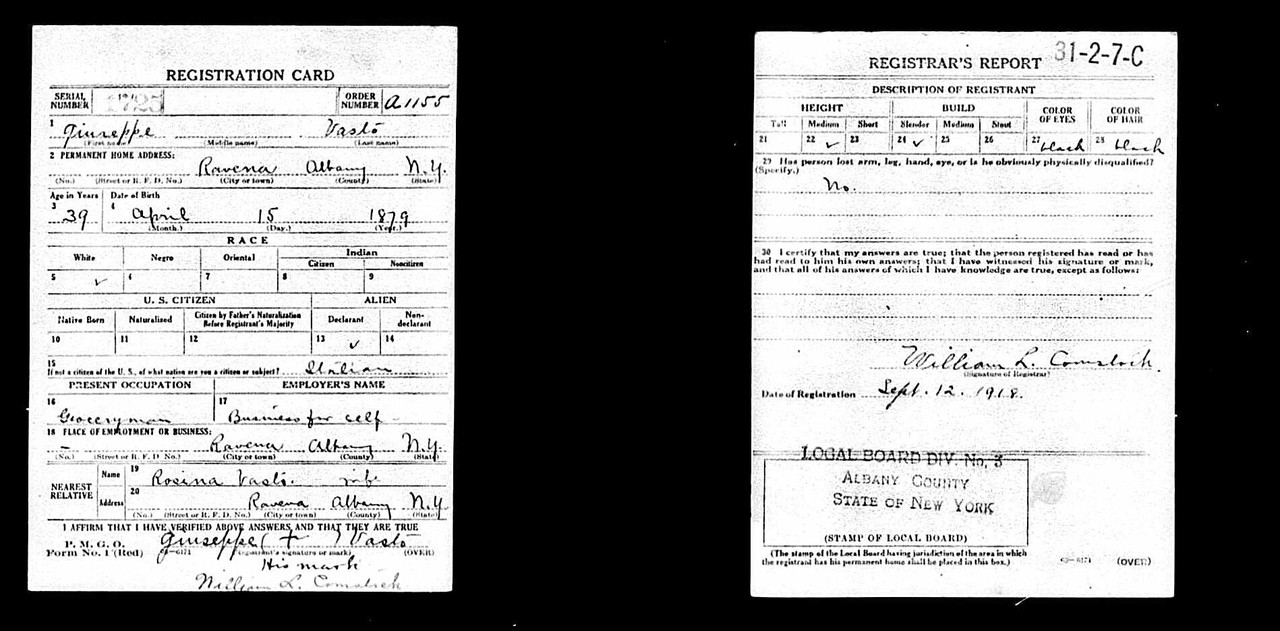 REGISTRATION CARD
SERIAL NUMBER ORDER NUMBER A1155
1 Giuseppe Vasto
(First name) (Middle name) (Last name)
2 PERMANENT HOME ADDRESS:
Ravena Albany N.Y.
(No.) (Street or R. F. D. No.) (City or town) (County) (State)
Age in Years Date of Birth
3 39 4 April 15 1879
(Month.) (Day.) (Year.)
RACE
White Negro Oriental Indian
Citizen Noncitizen
5 ✓ 6 7 8 9
U. S. CITIZEN ALIEN
Native Born Naturalized Citizen by Father's Naturalization Before Registrant's Majority Declarant Non-declarant
10 11 12 13 ✓ 14
15 If not a citizen of the U. S., of what nation are you a citizen or subject? Italian
PRESENT OCCUPATION EMPLOYER'S NAME
16 Groceryman 17 Business for self
18 PLACE OF EMPLOYMENT OR BUSINESS:
— Ravena Albany N.Y.
(No.) (Street or R. F. D. No.) (City or town) (County) (State)
NEAREST RELATIVE Name 19 Rosina Vasto. wife
Address 20 Ravena Albany N.Y.
(No.) (Street or R. F. D. No.) (City or town) (County) (State)
I AFFIRM THAT I HAVE VERIFIED ABOVE ANSWERS AND THAT THEY ARE TRUE
P. M. G. O.
Form No. 1 (Red) Giuseppe ( + ) Vasto
(Registrant's signature or mark) (OVER)
His mark
William L. Comstock
REGISTRAR'S REPORT 31-2-7-C
DESCRIPTION OF REGISTRANT
HEIGHT BUILD COLOR OF EYES COLOR OF HAIR
Tall Medium Short Slender Medium Stout
21 22 ✓ 23 24 ✓ 25 26 27 black 28 black
29 Has person lost arm, leg, hand, eye, or is he obviously physically disqualified?
(Specify.)
No.
30 I certify that my answers are true; that the person registered has read or has
had read to him his own answers; that I have witnessed his signature or mark,
and that all of his answers of which I have knowledge are true, except as follows:
William L. Comstock.
(Signature of Registrar)
Date of Registration Sept. 12. 1918.
LOCAL BOARD DIV. No. 3
ALBANY COUNTY
STATE OF NEW YORK
(STAMP OF LOCAL BOARD)
(The stamp of the Local Board having jurisdiction of the area in which
the registrant has his permanent home shall be placed in this box.)
(OVER)